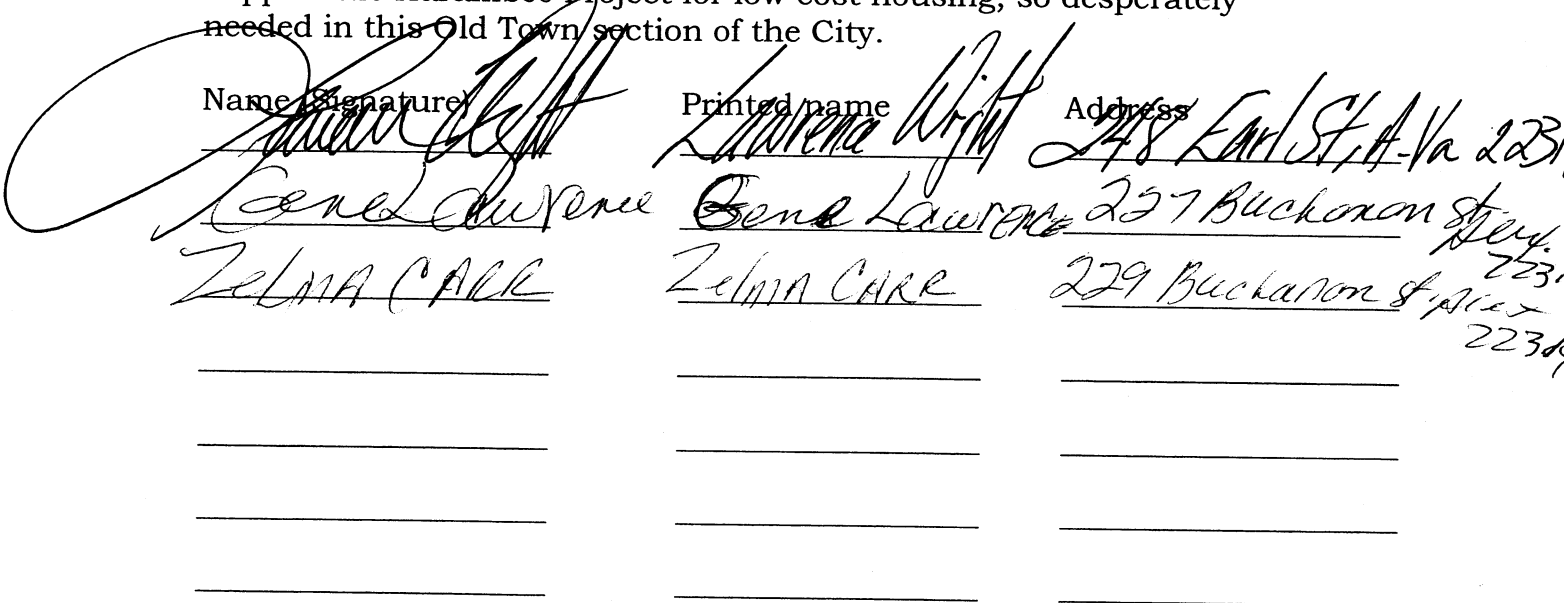 support the Harambee Project for low cost housing, so desperately
needed in this Old Town section of the City.
Name (Signature) Printed name Address
Lawrence Wright 248 Earl St, A-Va 223
Gene Lawrence Gene Lawrence 227 Buchanan St
223
Zelma CARR Zelma CARR 229 Buchanan St. Alex
223